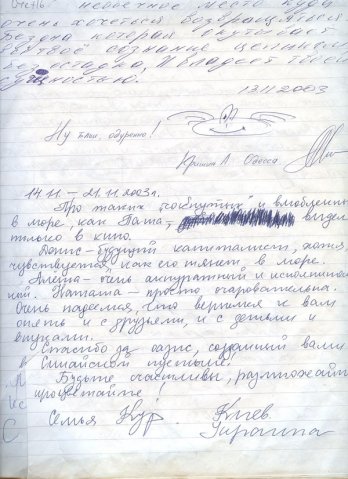 Очень необычное место куда
очень хочеться возвращаться
Бездна которая окутывает
без остадка, И владеет твоей
сущностью.
13 11 2003
Ну блин, обуренно!
Одесса
14.11 – 21.11 2003г.
Про таких "чокнутых" и влюбленных
в море, как Паша, видели
только в кино.
Денис – будущий капиталист, хотя
чувствуется, как его тянет в море.
Алёна – очень аккуратный и исполнитель-
ной. Наташа – просто очаровательна.
Очень надеемся, что вернемся к вам
опять и с друзьями, и с детьми и
внуками.
Спасибо за оазис, созданный вами
в Синайской пустыне!
Будьте счастливы, размножайте
процветайте!
Семья Киев
Украина